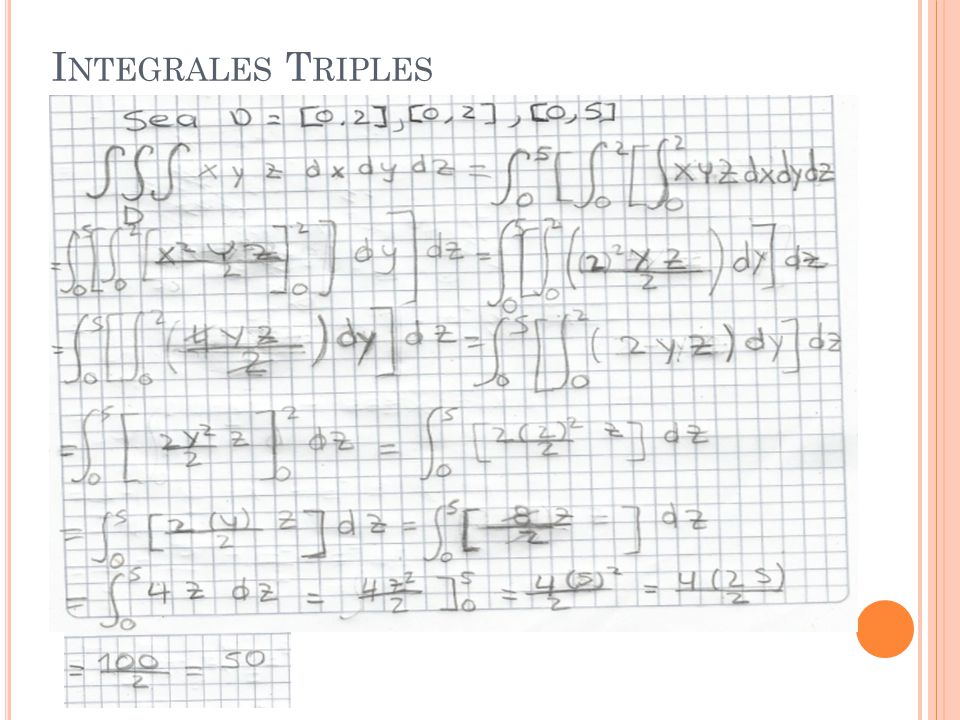 INTEGRALES TRIPLES
Sea D = [0.2],[0,2],[0,5]
∫∫∫_D x y z dx dy dz = ∫_0^5 [∫_0^2 [∫_0^2 xyz dxdydz
= ∫_0^5 [∫_0^2 [x² y z / 2]_0^2 ] dy] dz = ∫_0^5 [∫_0^2 ((2)² y z / 2) dy] dz
= ∫_0^5 [∫_0^2 (4 y z / 2) dy] dz = ∫_0^5 [∫_0^2 (2 y z) dy] dz
= ∫_0^5 [2y²/2 z]_0^2 dz = ∫_0^5 [2(2)²/2 z] dz
= ∫_0^5 [2(4)/2 z] dz = ∫_0^5 [8 z / 2 - ] dz
= ∫_0^5 4 z dz = 4z²/2 ]_0^5 = 4(5)²/2 = 4(25)/2
= 100/2 = 50